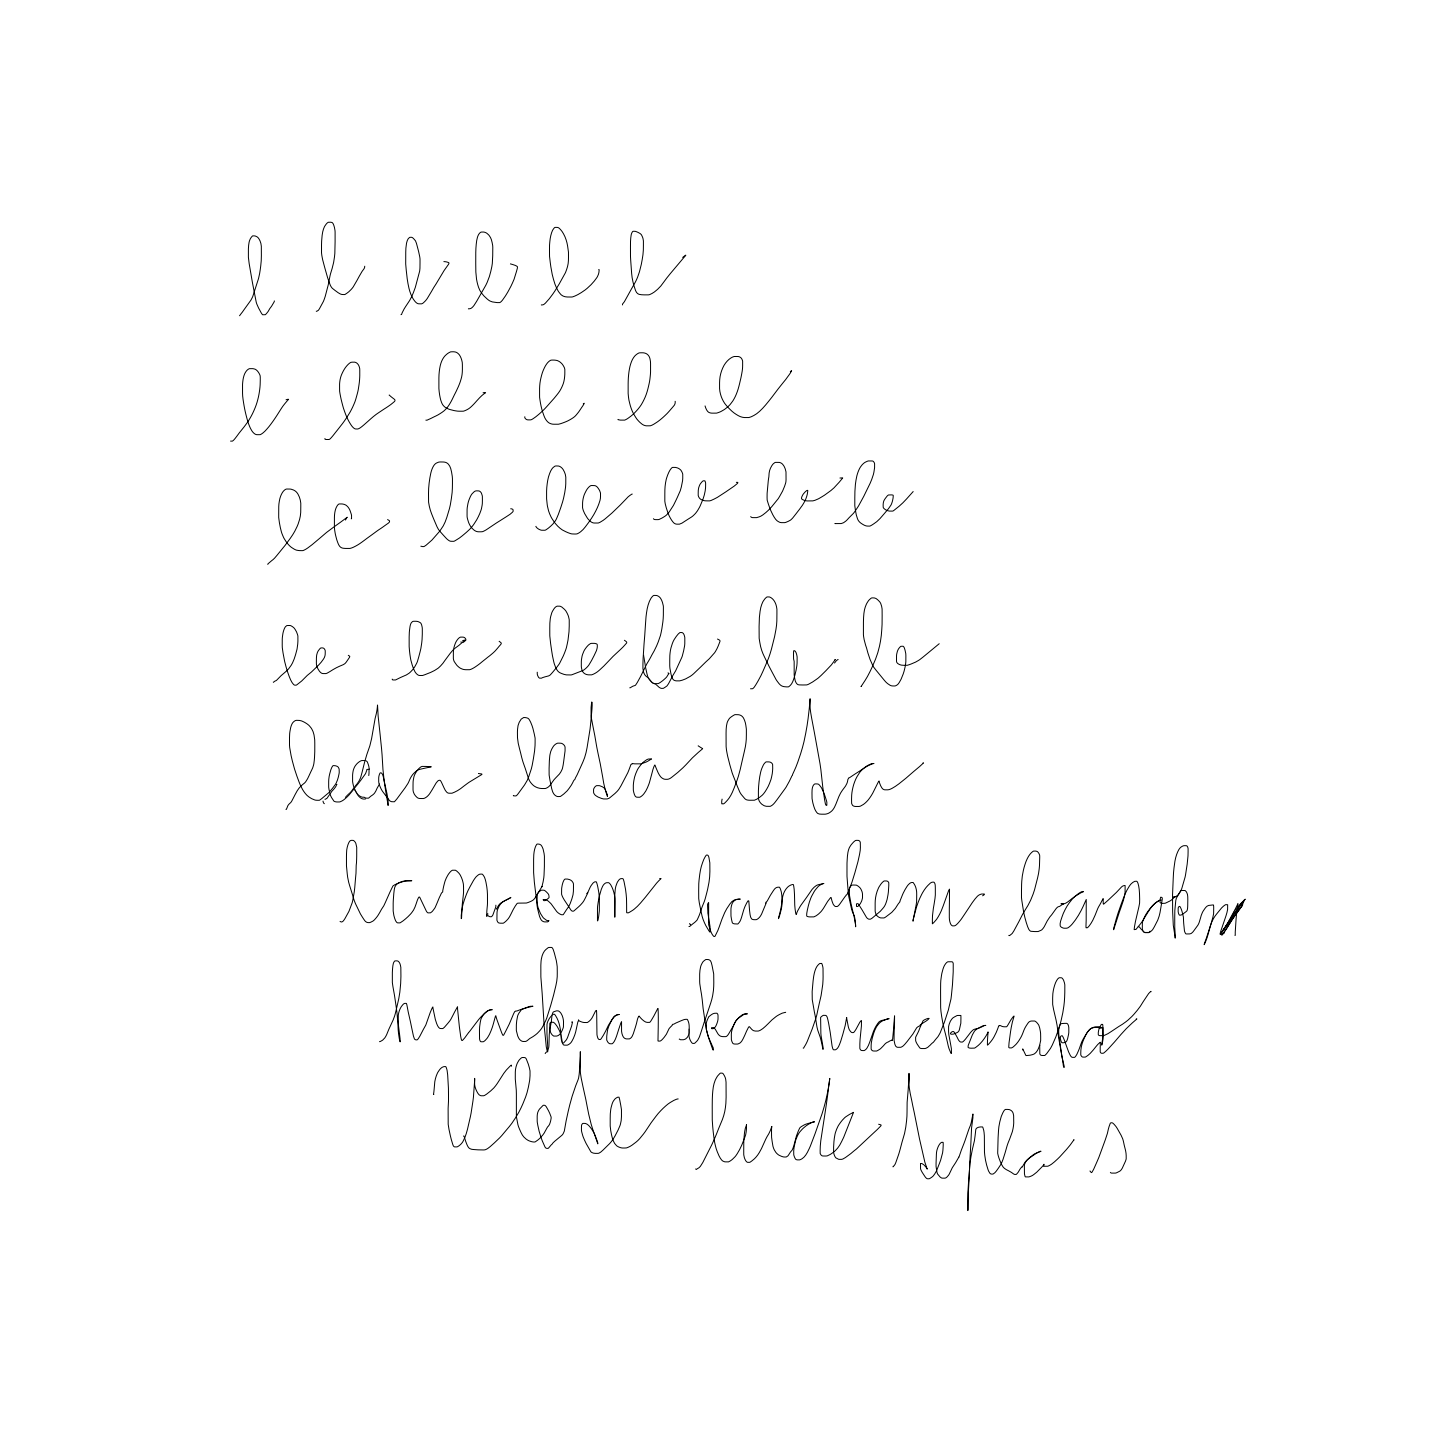 l l l l l l
l l l l l l
le le le le le le
le le le le le le
leta leta leta
lanakem lanakem lanokm
hrackarska hrackarska
V lete lude tepla s